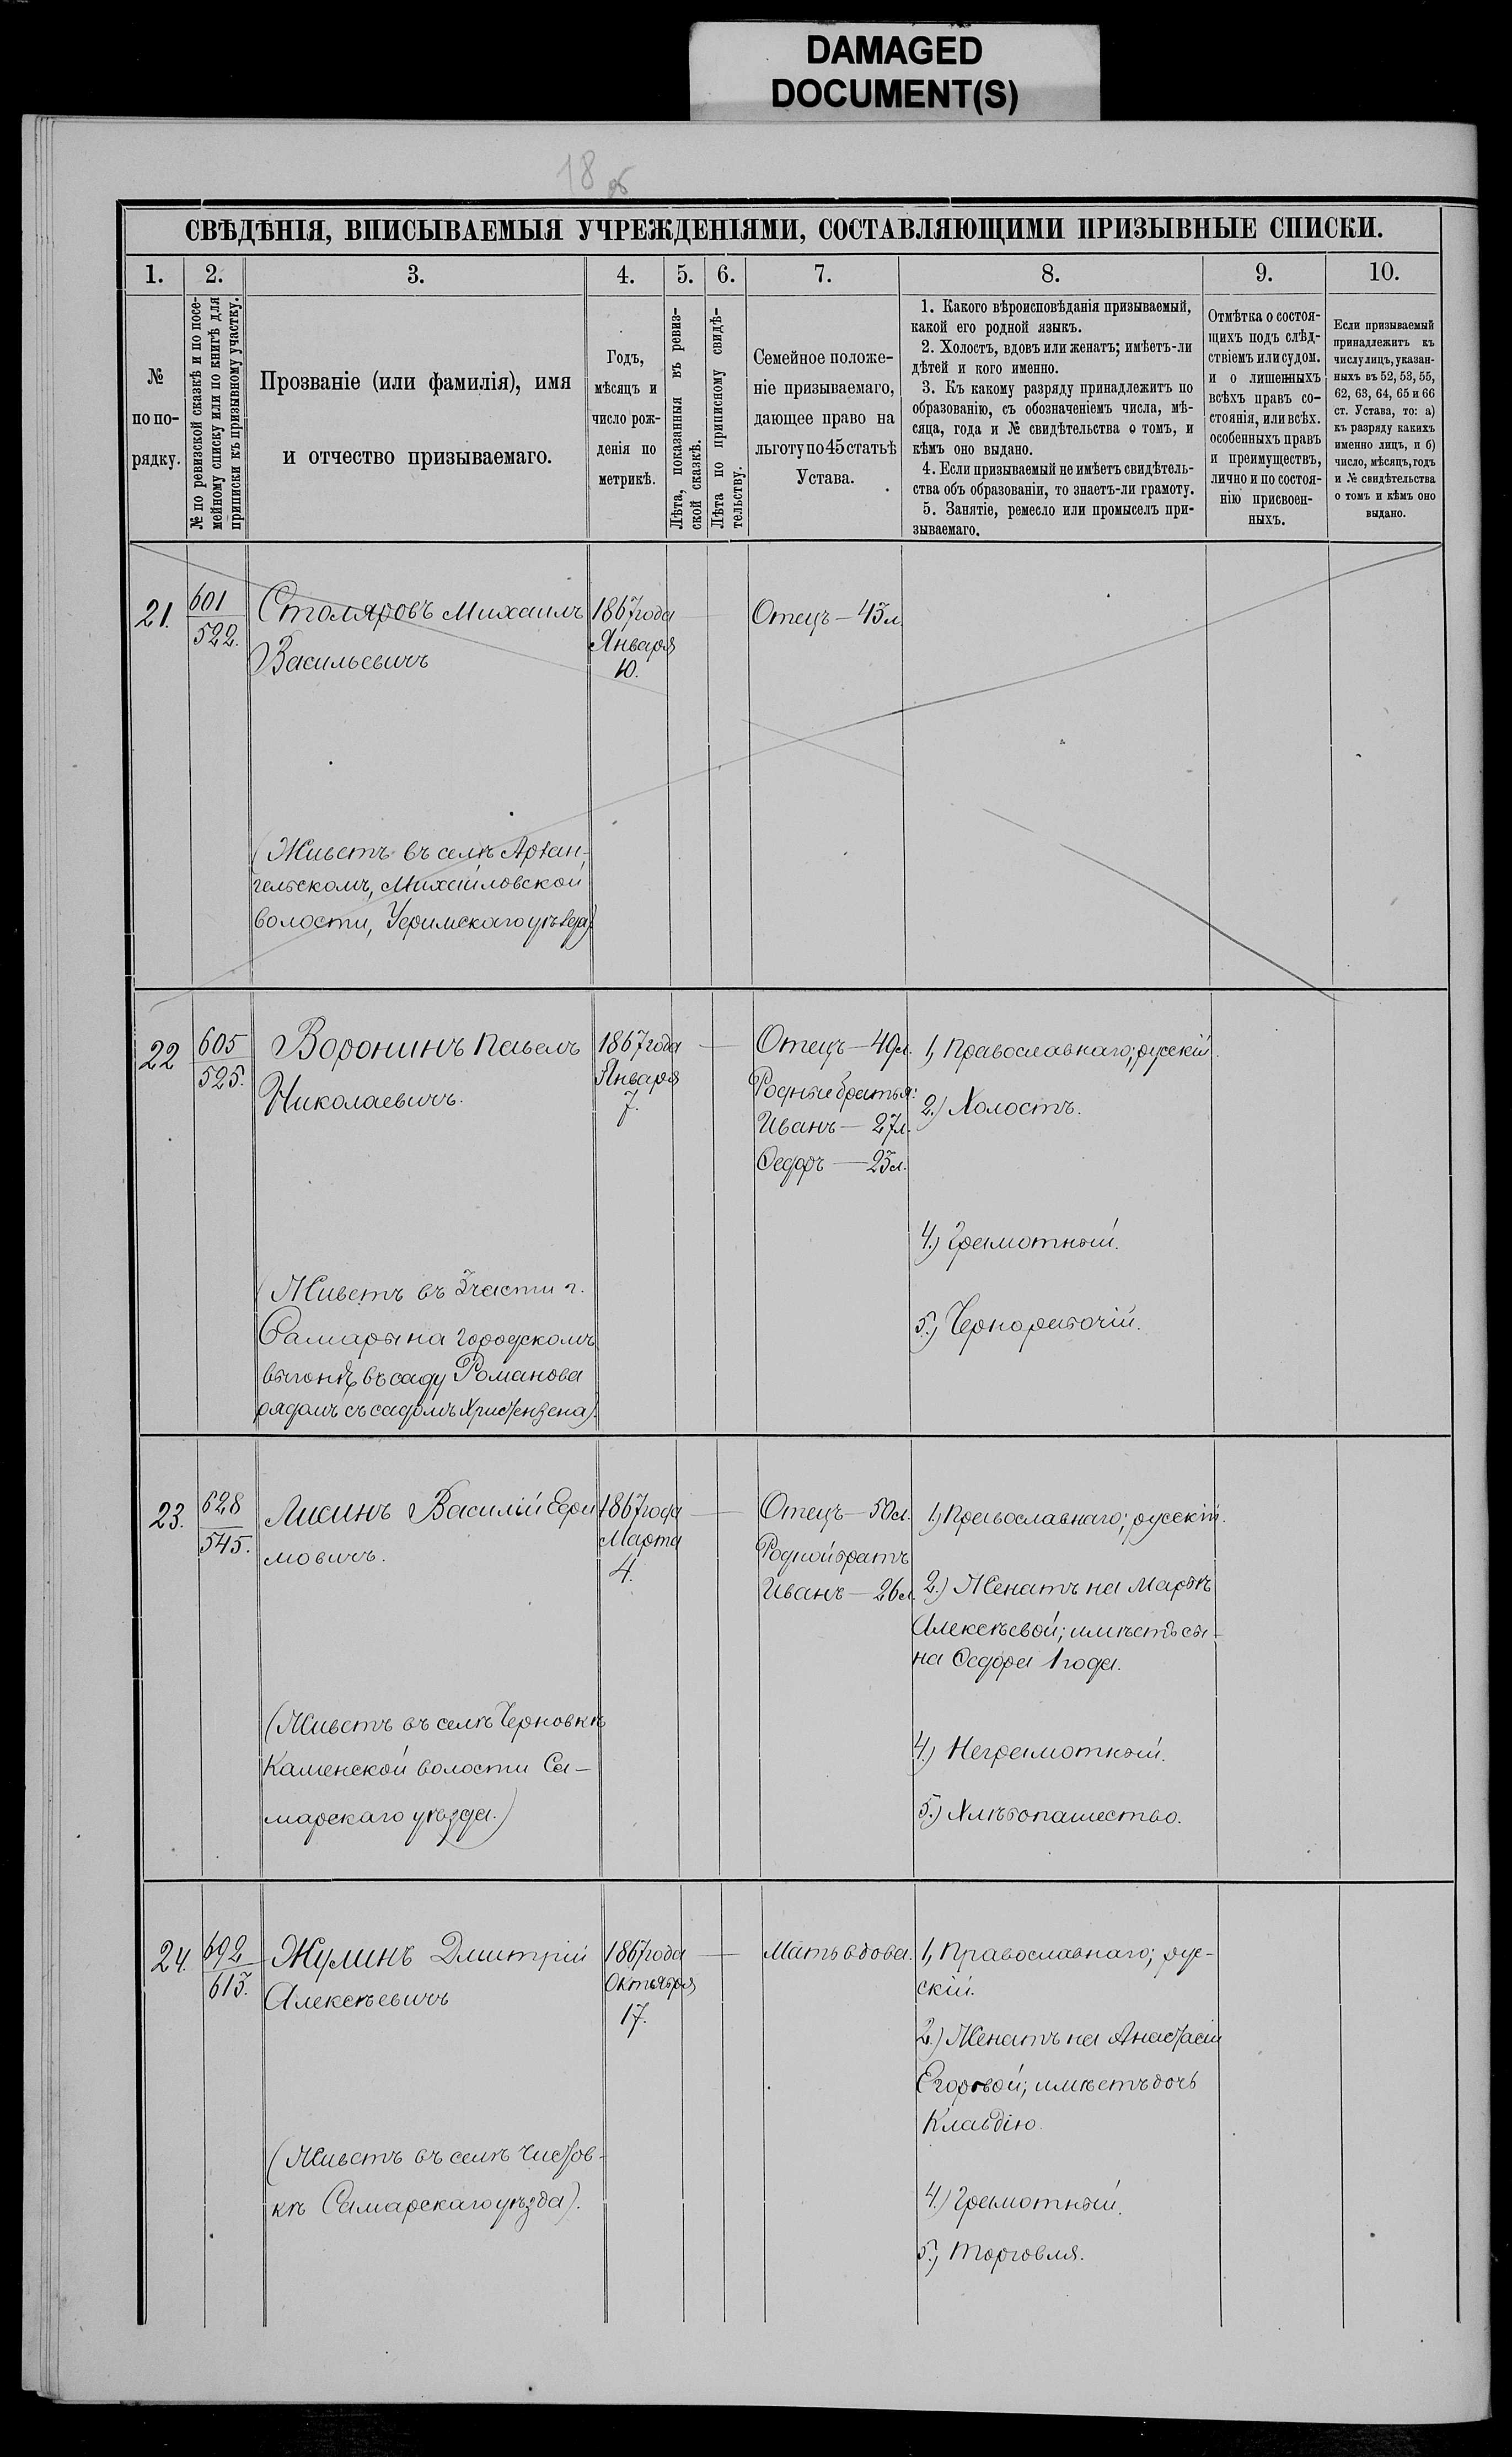 DAMAGED
DOCUMENT(S)
18 об
СВѢДѢНІЯ, ВПИСЫВАЕМЫЯ УЧРЕЖДЕНІЯМИ, СОСТАВЛЯЮЩИМИ ПРИЗЫВНЫЕ СПИСКИ.
1.
2.
3.
4.
5.
6.
7.
8.
9.
10.
№
по по-
рядку.
№ по ревизской сказкѣ и по посе-
мейному списку или по книгѣ для
приписки къ призывному участку.
Прозваніе (или фамилія), имя
и отчество призываемаго.
Годъ,
мѣсяцъ и
число рож-
денія по
метрикѣ.
Лѣта, показанныя въ ревиз-
ской сказкѣ.
Лѣта по приписному свидѣ-
тельству.
Семейное положе-
ніе призываемаго,
дающее право на
льготу по 45 статьѣ
Устава.
1. Какого вѣроисповѣданія призываемый,
какой его родной языкъ.
2. Холостъ, вдовъ или женатъ; имѣетъ-ли
дѣтей и кого именно.
3. Къ какому разряду принадлежитъ по
образованію, съ обозначеніемъ числа, мѣ-
сяца, года и № свидѣтельства о томъ, и
кѣмъ оно выдано.
4. Если призываемый не имѣетъ свидѣтель-
ства объ образованіи, то знаетъ-ли грамоту.
5. Занятіе, ремесло или промыселъ при-
зываемаго.
Отмѣтка о состоя-
щихъ подъ слѣд-
ствіемъ или судом.
и о лишенныхъ
всѣхъ правъ со-
стоянія, или всѣх.
особенныхъ правъ
и преимуществъ,
лично и по состоя-
нію присвоен-
ныхъ.
Если призываемый
принадлежитъ къ
числу лицъ, указан-
ныхъ въ 52, 53, 55,
62, 63, 64, 65 и 66
ст. Устава, то: а)
къ разряду какихъ
именно лицъ, и б)
число, мѣсяцъ, годъ
и № свидѣтельства
о томъ и кѣмъ оно
выдано.
21.
601
522.
Столяровъ Михаилъ
Васильевичъ
(Живетъ въ селѣ Архан-
гельскомъ, Михайловской
волости, Уфимскаго уѣзда).
1867 года
Января
10.
Отецъ — 43 л.
22
605
525.
Воронинъ Павелъ
Николаевичъ.
(Живетъ въ 3 части г.
Самары на городскомъ
выгонѣ, въ саду Романова
рядомъ съ садомъ Христензена).
1867 года
Января
7.
Отецъ — 49 л.
Родные братья:
Иванъ — 27 л.
Федоръ — 23 л.
1, Православнаго; русскій.
2.) Холостъ.
4.) Грамотный.
5.) Чернорабочій.
23.
628
545.
Лисинъ Василій Ефи
мовичъ.
(Живетъ въ селѣ Черновкѣ
Каменской волости Са-
марскаго уѣзда.)
1867 года
Марта
4.
Отецъ — 50 л.
Родной братъ
Иванъ — 26 л.
1, Православнаго; русскій.
2.) Женатъ на Марѳѣ
Алексѣевой; имѣетъ сы-
на Федора 1 года.
4.) Неграмотный.
5.) Хлѣбопашество.
24.
692
613.
Жулинъ Дмитрій
Алексѣевичъ
(Живетъ въ селѣ Чистов-
кѣ Самарскаго уѣзда).
1867 года
Октября
17.
Мать вдова.
1, Православнаго; рус-
скій.
2.) Женатъ на Анастасіи
Егоровой; имѣетъ дочь
Клавдію.
4.) Грамотный.
5.) Торговля.